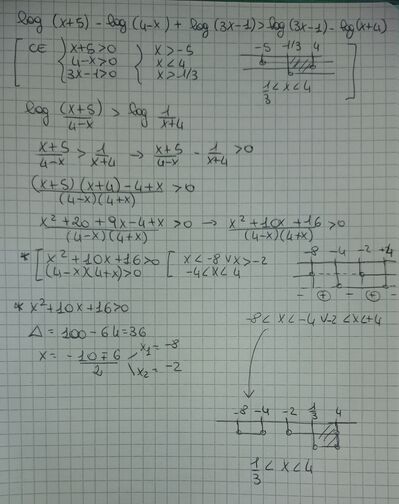 log (x+5) - log (4-x) + log (3x-1) > log (3x-1) - log (x+4)
CE { x+5>0 { x>-5 -5 1/3 4
4-x>0 x<4
3x-1>0 x>1/3 1/3 < x < 4
log (x+5)/(4-x) > log 1/(x+4)
(x+5)/(4-x) > 1/(x+4) → (x+5)/(4-x) - 1/(x+4) > 0
((x+5)(x+4)-4+x)/((4-x)(4+x)) > 0
(x²+20+9x-4+x)/((4-x)(4+x)) > 0 → (x²+10x+16)/((4-x)(4+x)) > 0
* [ x²+10x+16>0 [ x<-8 ∨ x>-2 -8 -4 -2 +4
(4-x)(4+x)>0 -4<x<4 - + - + -
* x²+10x+16>0 -8<x<-4 ∨ -2<x<+4
Δ = 100-64=36
x = (-10∓6)/2 x₁ = -8
x₂ = -2
-8 -4 -2 1/3 4
1/3 < x < 4